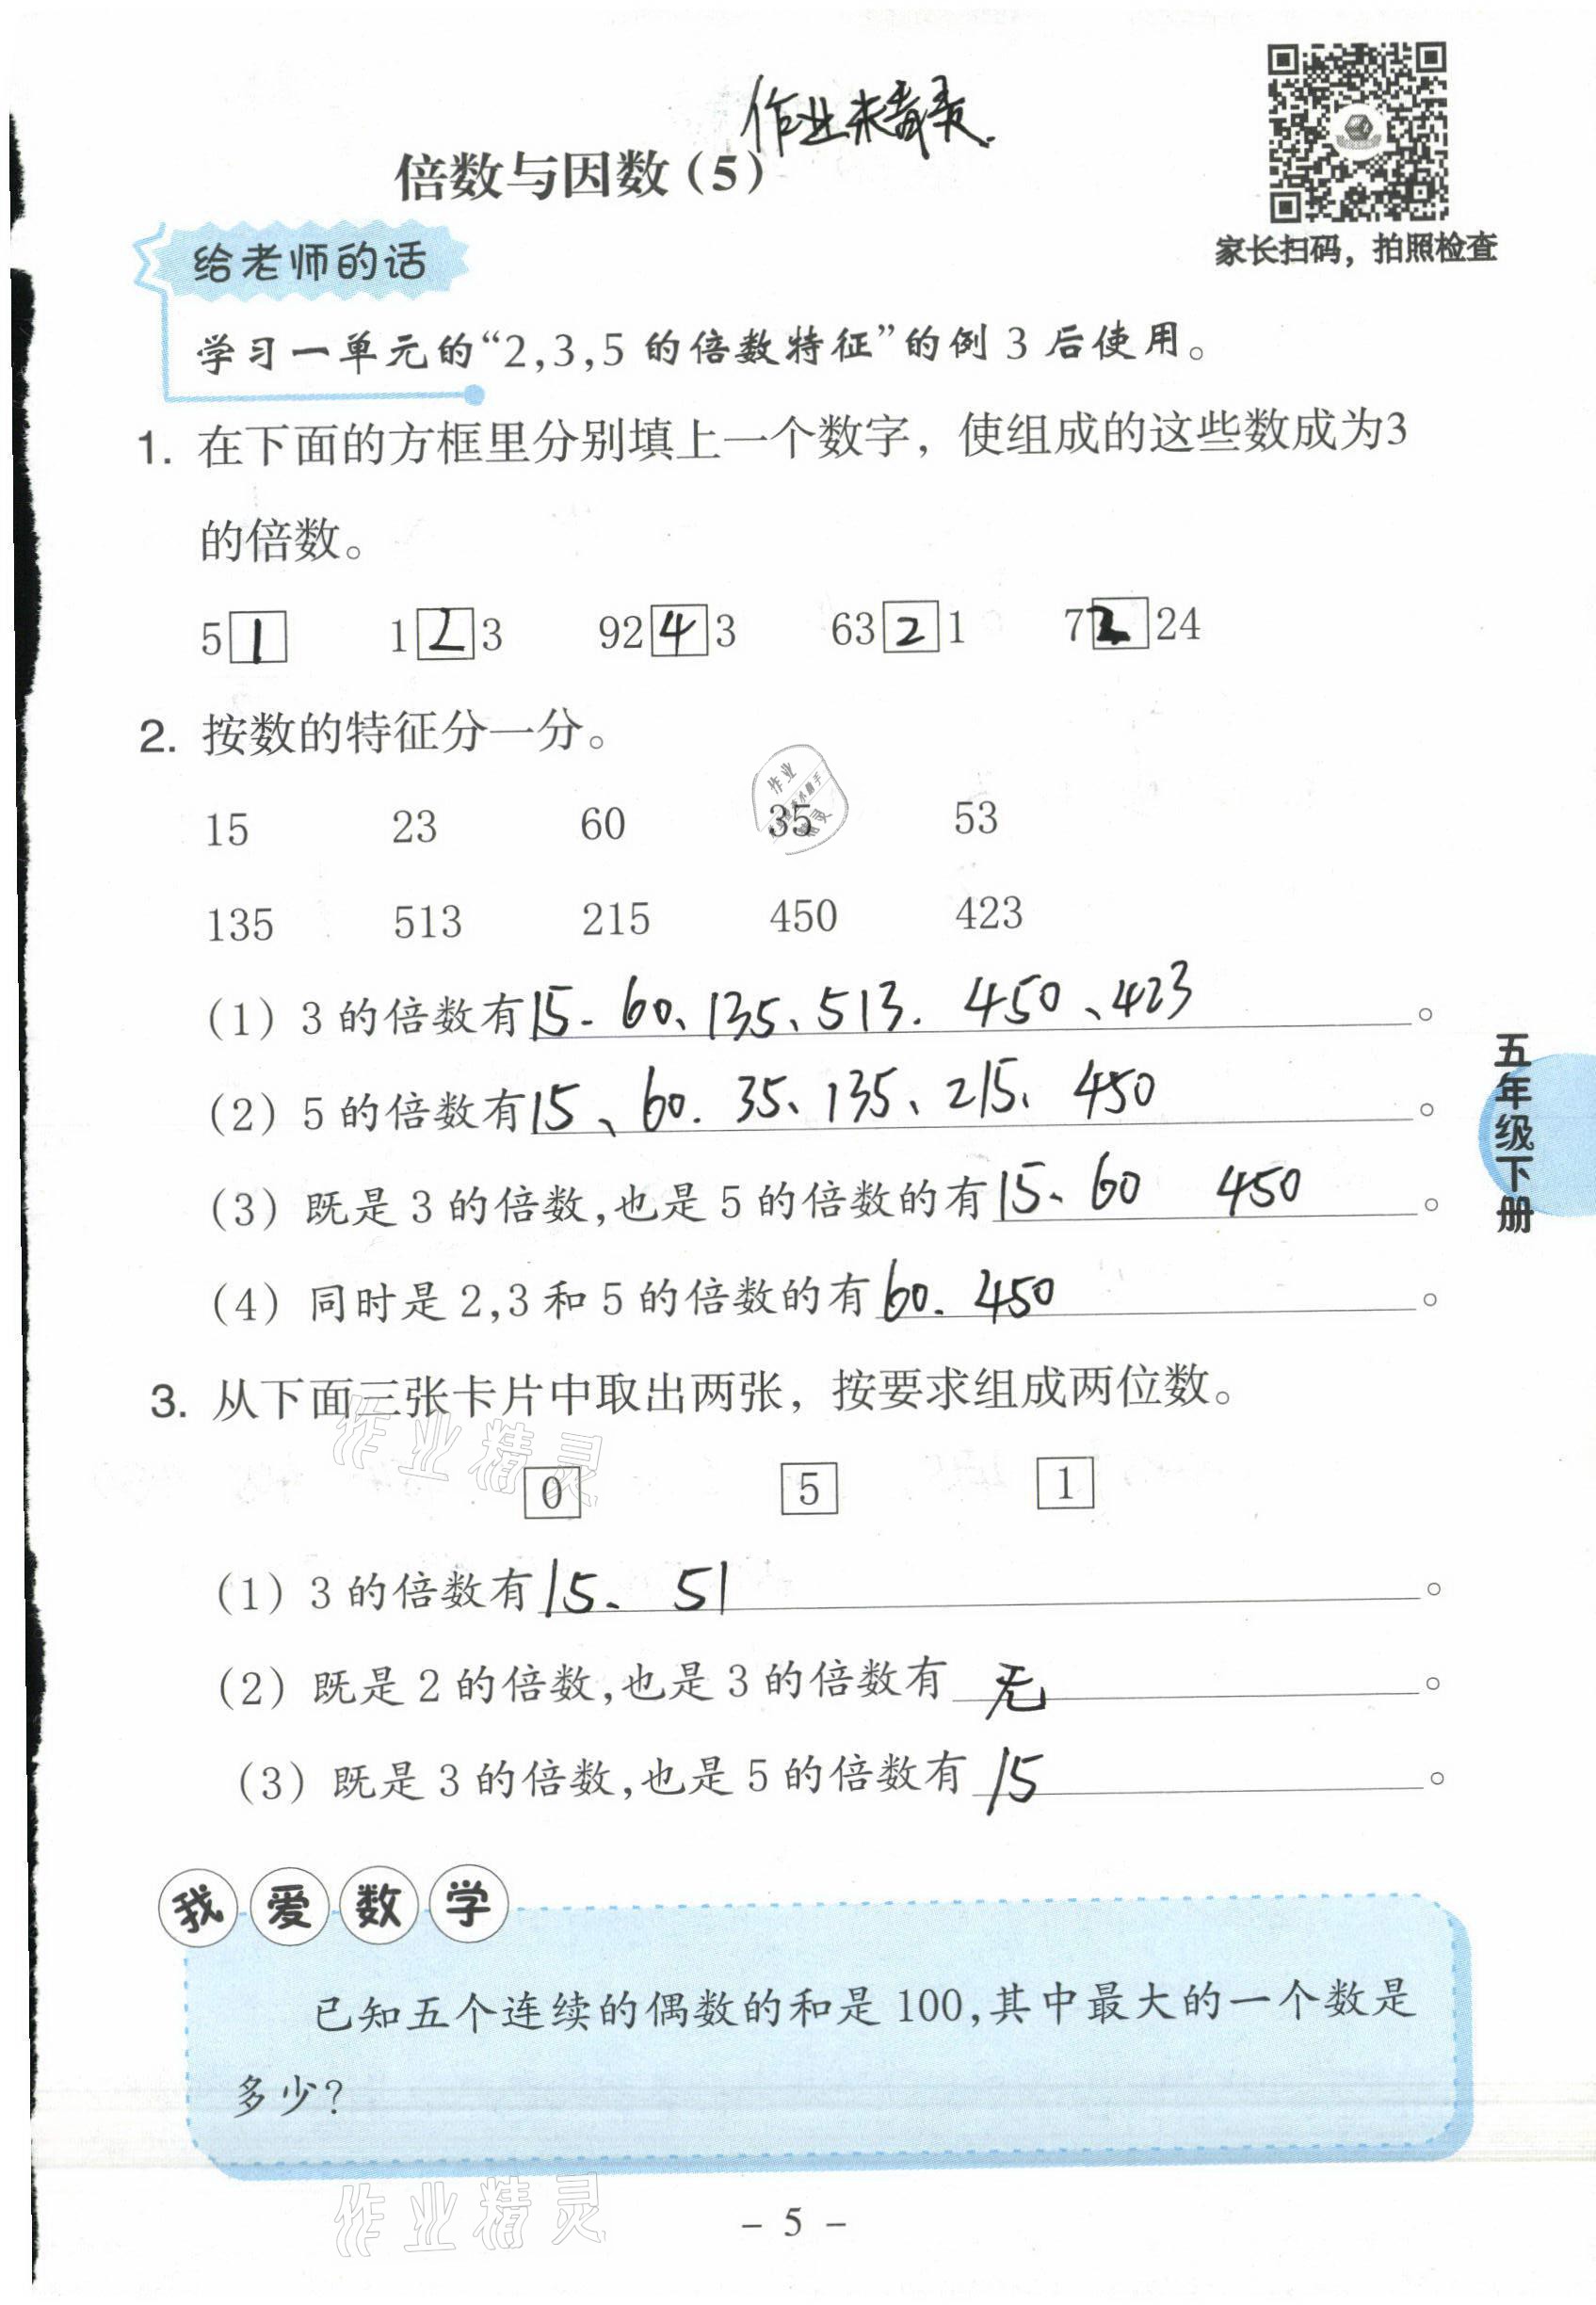 作业未布置.
倍数与因数(5)
家长扫码，拍照检查
给老师的话
学习一单元的“2,3,5的倍数特征”的例3后使用。
1. 在下面的方框里分别填上一个数字，使组成的这些数成为3
的倍数。
51 123 9243 6321 724
2. 按数的特征分一分。
15 23 60 35 53
135 513 215 450 423
(1) 3的倍数有15、60、135、513、450、423。
(2) 5的倍数有15、60、35、135、215、450。
(3) 既是3的倍数,也是5的倍数的有15、60 450。
(4) 同时是2,3和5的倍数的有60、450。
五年级下册
3. 从下面三张卡片中取出两张，按要求组成两位数。
0 5 1
(1) 3的倍数有15、51。
(2) 既是2的倍数,也是3的倍数有无。
(3) 既是3的倍数,也是5的倍数有15。
我爱数学
已知五个连续的偶数的和是100,其中最大的一个数是
多少?
作业精灵
- 5 -